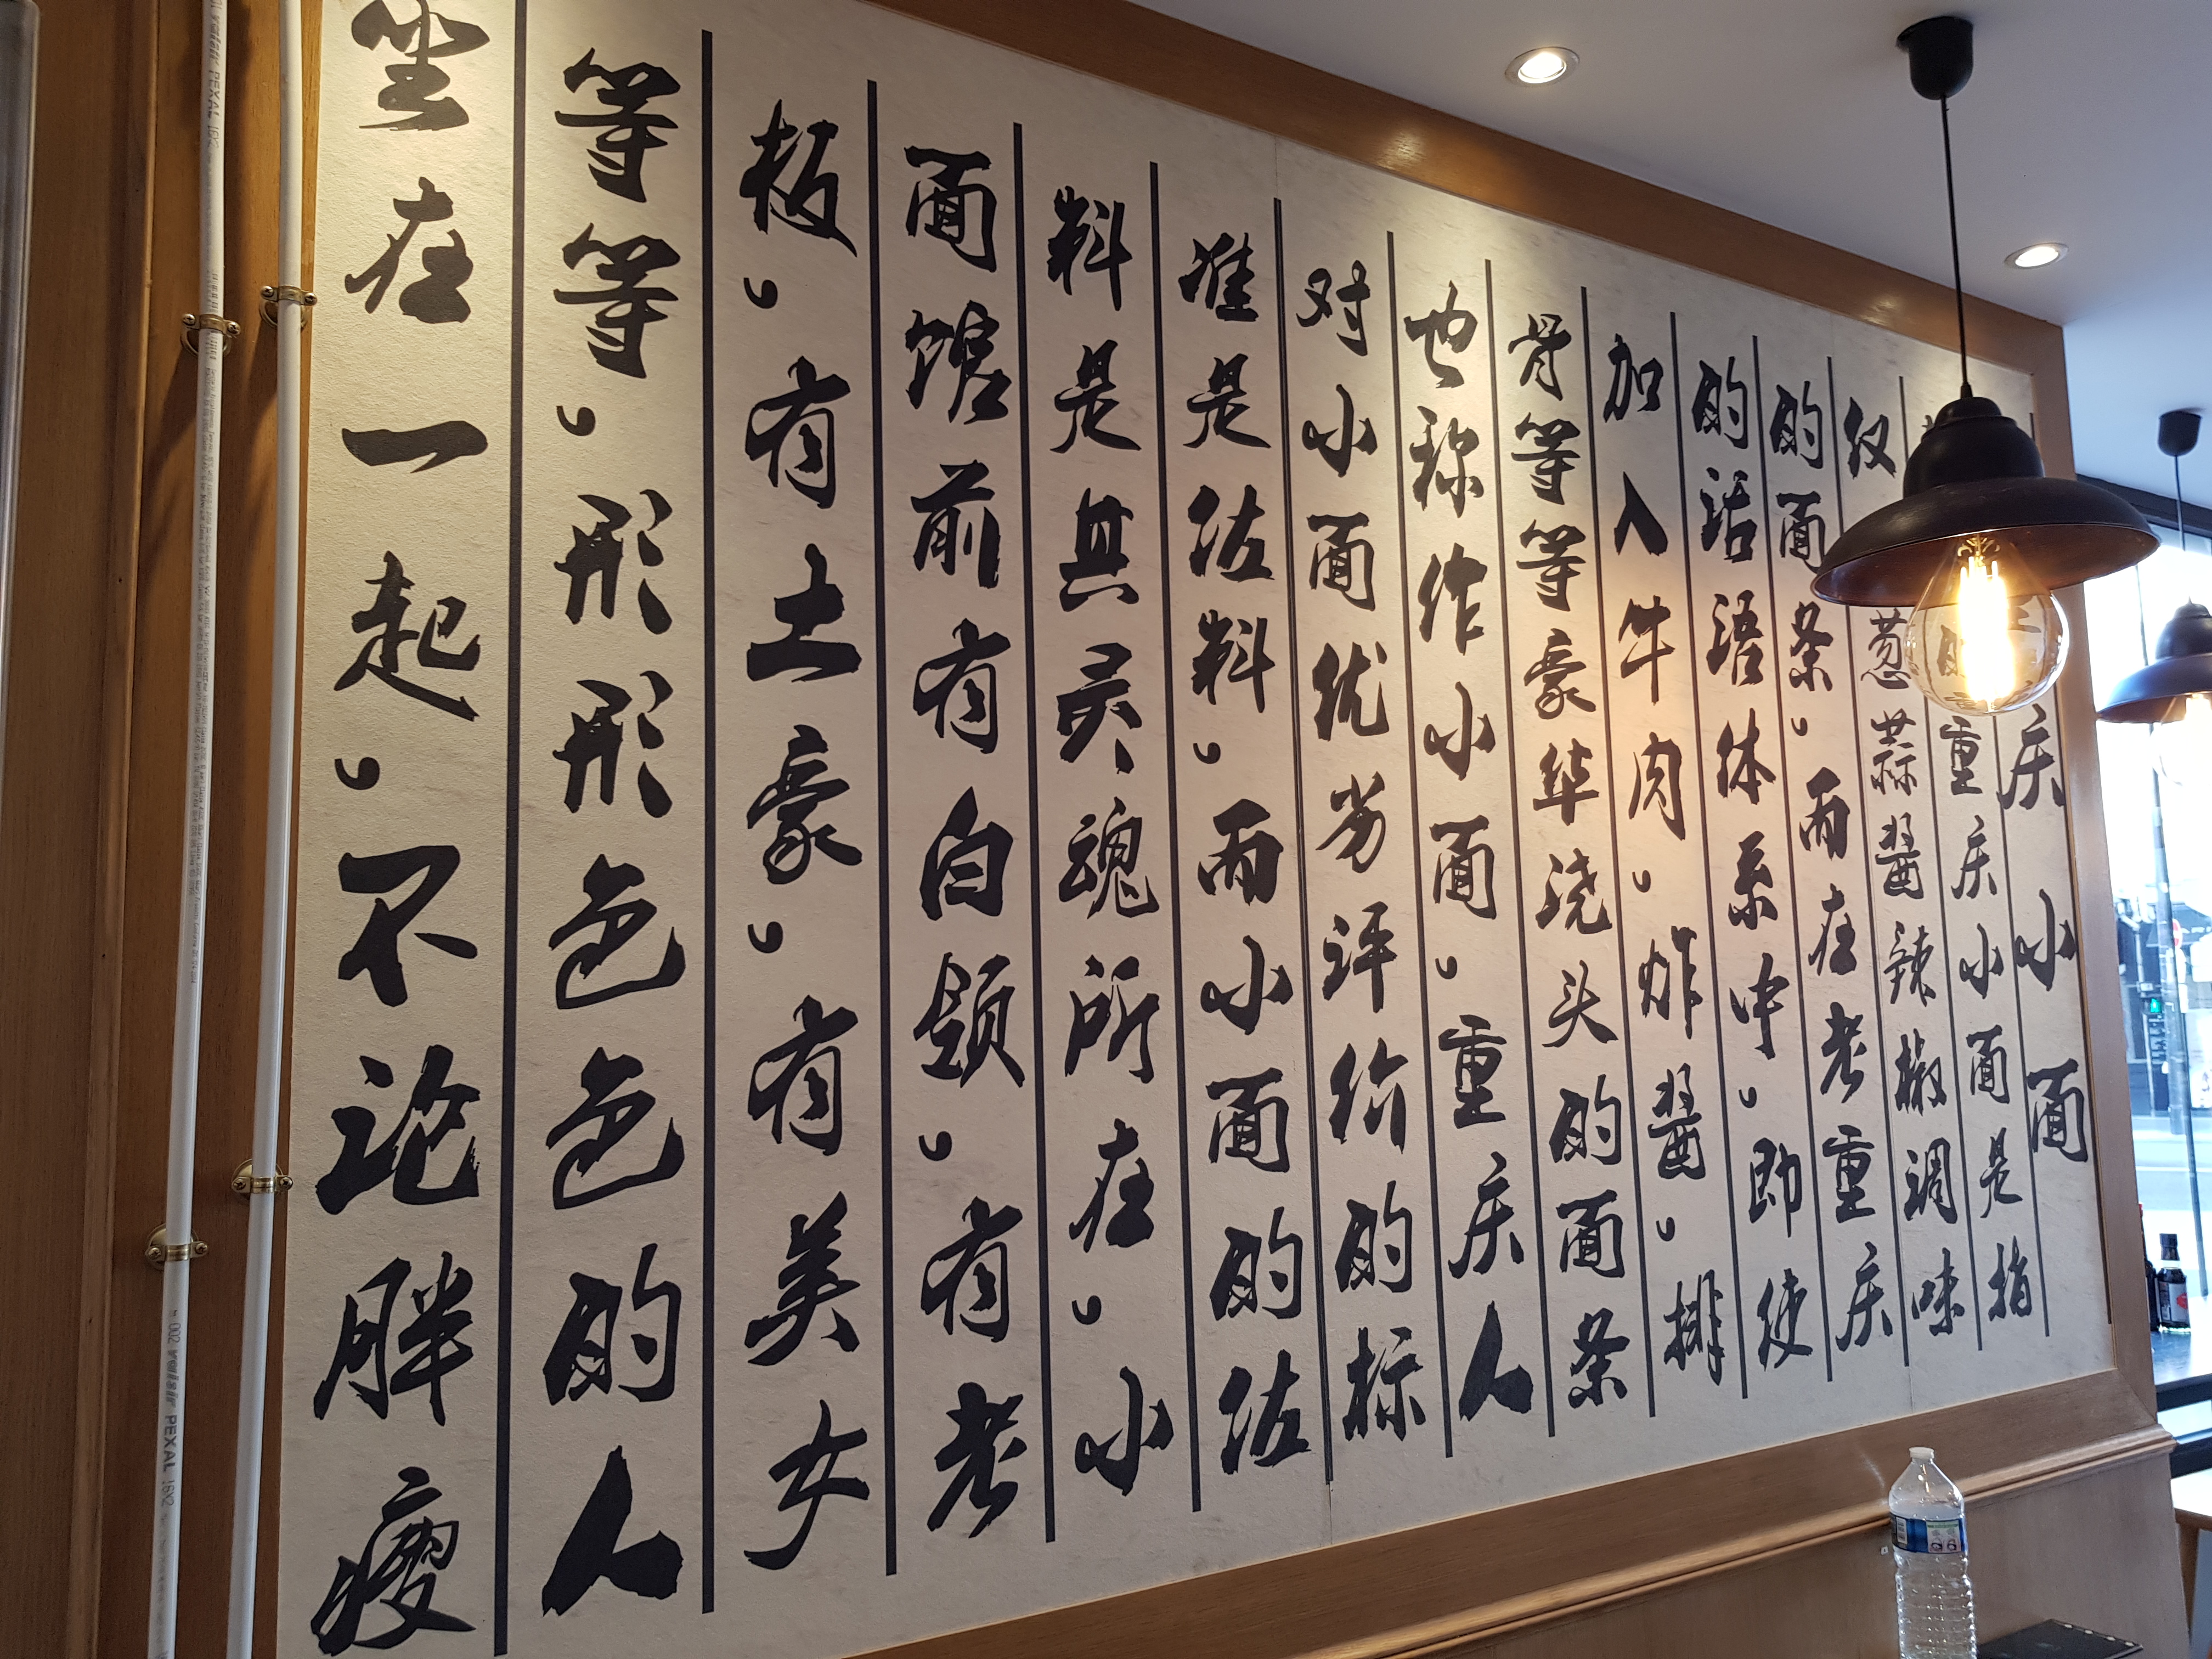 庆小面
重庆小面是指
仅葱蒜酱辣椒调味
的面条，而在老重庆
的话语体系中，即使
加入牛肉，炸酱，排
骨等等豪华浇头的面条
也称作小面，重庆人
对小面优劣评价的标
准是佐料，而小面的佐
料是其灵魂所在，小
面馆前有白领，有老
板，有土豪，有美女
等等，形形色色的人
坐在一起，不论胖瘦
valsir PEXAL